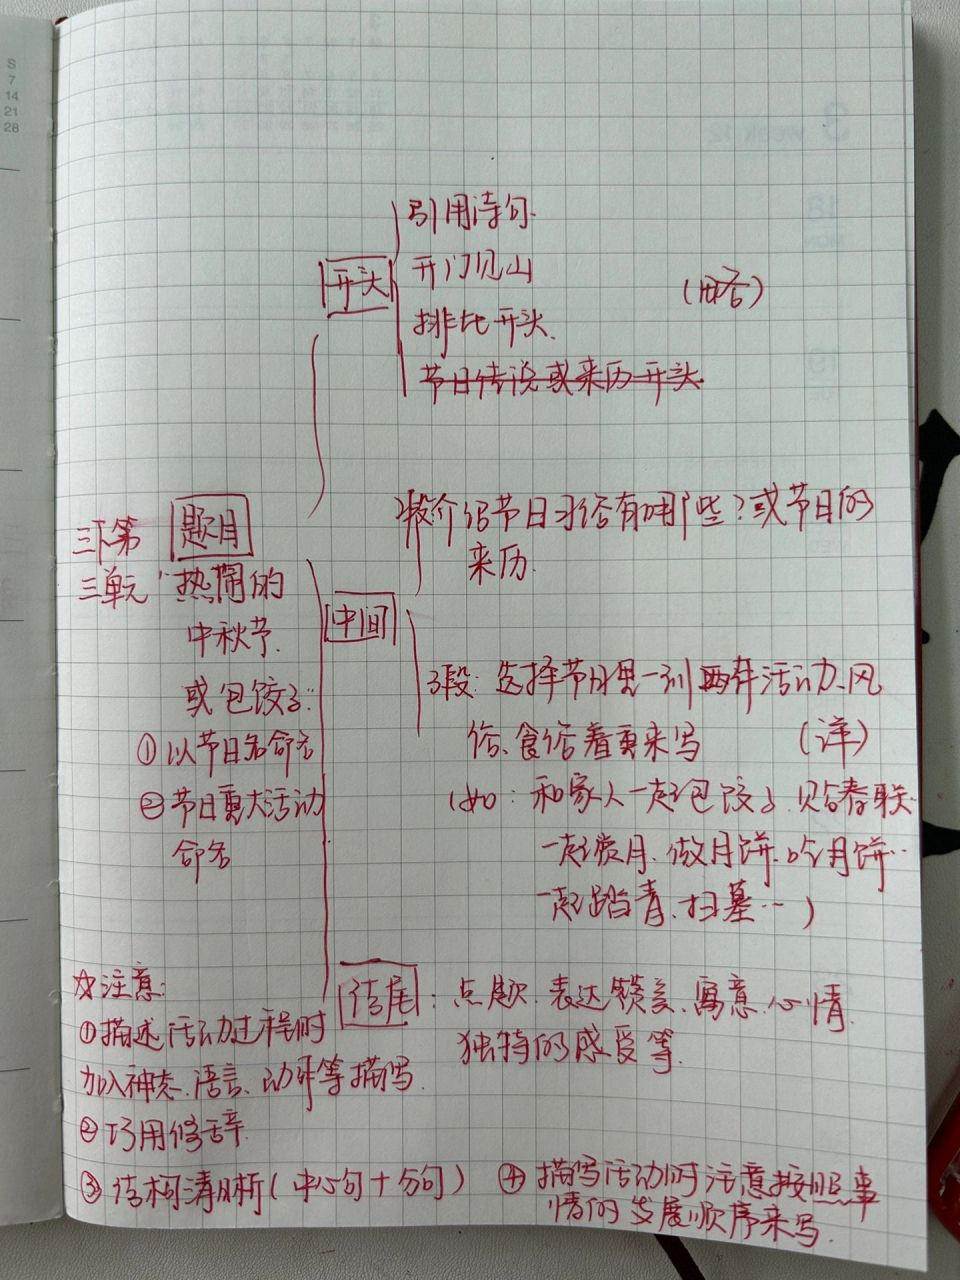 S
7
14
21
28
引用诗句
开头
开门见山
(略)
排比开头
节日传说或来历开头
2段介绍节日习俗有哪些?或节日的
来历.
三下第
三单元
题目
"热闹的
中秋节
或包饺子:
①以节日名命名
②节日重大活动
命名
中间
3段:选择节日里一到两件活动、风
俗、食俗着重来写 (详)
(如:和家人一起包饺子、贴春联
一起赏月、做月饼、吃月饼…
一起踏青、扫墓…)
结尾:点题、表达赞美、寓意、心情、
独特的感受等.
☆注意:
①描述活动过程时
加入神态、语言、动作等描写.
②巧用修辞.
③结构清晰(中心句+分句)
④描写活动时注意按照事
情的发展顺序来写.